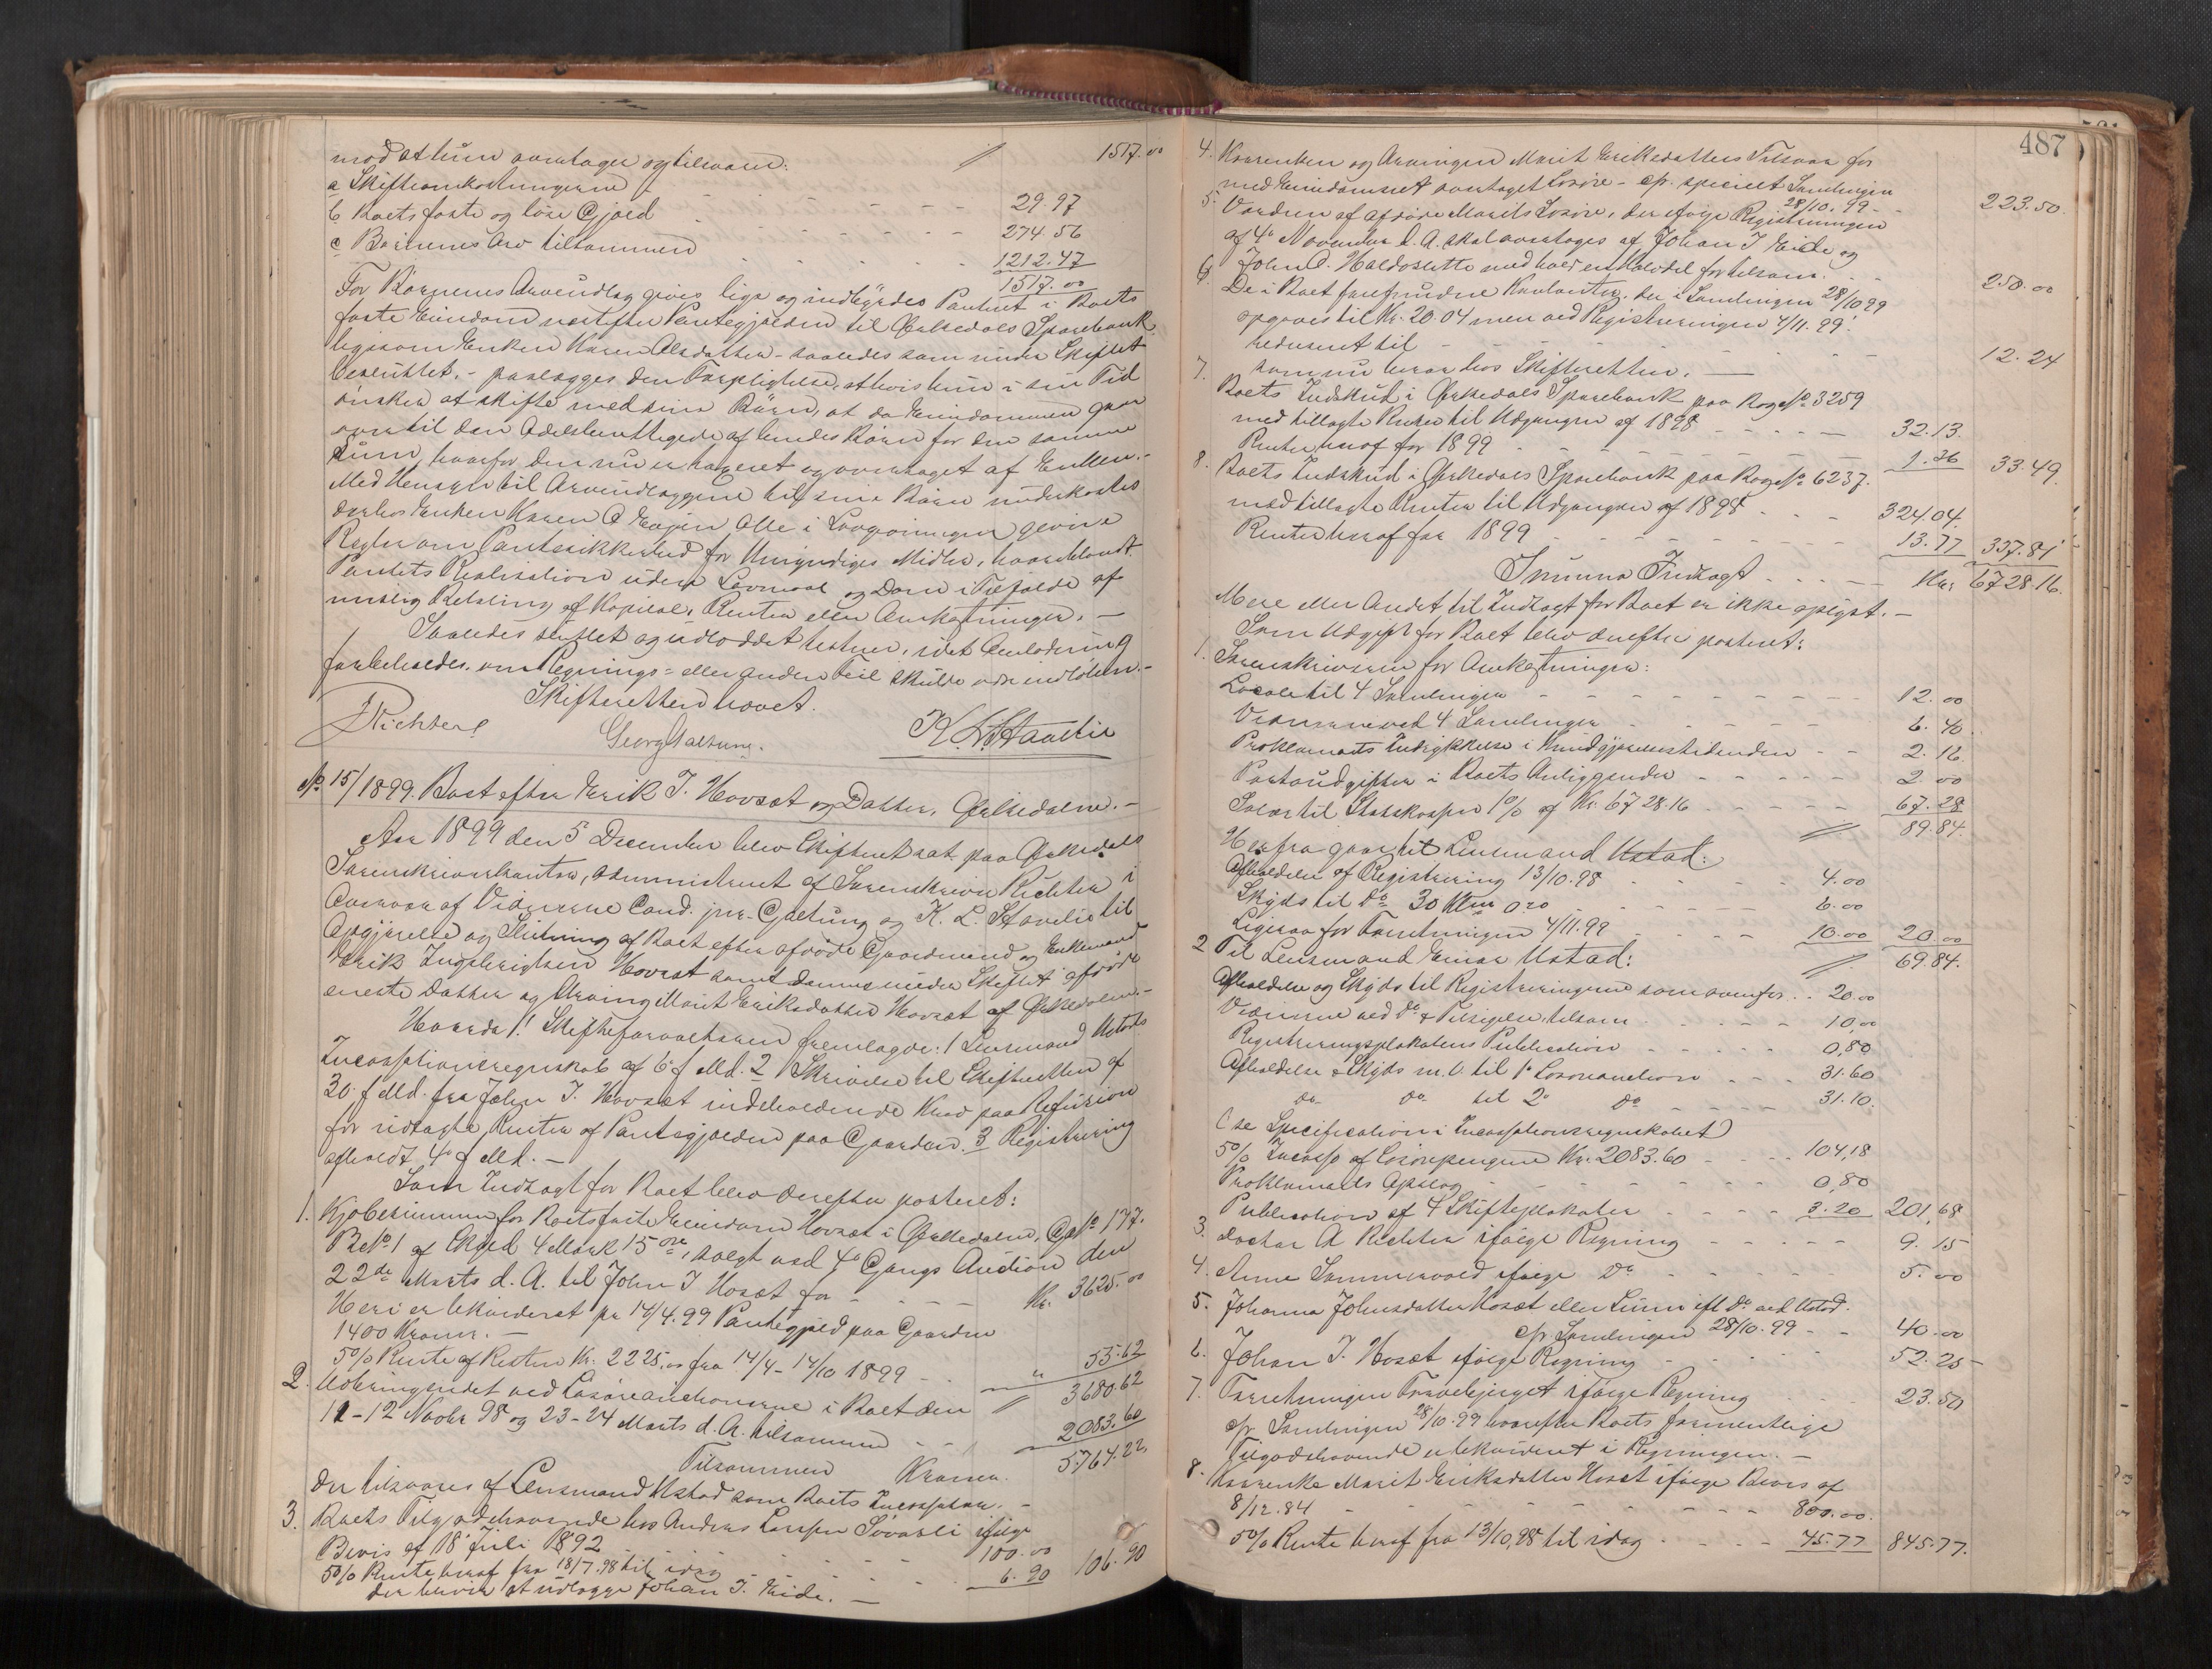 mod at hun overtager og tilsvarer: // 1517.00
a Skifteomkostningerne - - - 29.97
b Boets faste og løse Gjæld - - - 274.56
c Børnenes Arv tilsammen - - - 1212.47
1517.00
For Børnenes Arveudlæg gives lige og indbyrdes Panteret i Boets
faste Eiendom næstefter Pantegjælden til Ørkedals Sparebank
ligesom Enken Karen Olsdatter - saaledes som under Skiftet
besluttet, - paalægges den Forpligtelse, at hvis hun i sin Tid
ønsker at skifte med sine Børn, at da Eiendommen gaar
over til den Odelsberettigede af hendes Børn for den samme
Sum, hvorfor den nu er taxeret og overtaget af Enken. -
Med Hensyn til Arveudlæggene til sine Børn underkastes
derhos Enken Karen O Eggen Alle i Lovgivningen givne
Regler om Pantesikkerhed for Umyndiges Midler, hvoriblandt
Pantets Realisation uden Lovmaal og Dom i Tilfælde af
uristig Betaling af Kapital, Renter eller Omkostninger. -
Saaledes sluttet og udloddet testner, idet Omlodning
forbeholdes, om Regnings- eller anden Feil skulde være indløben. -
Skifteretten hævet.
J Richter Georg Gaetung. K. L. Stavlie
No 15/1899. Boet efter Erik I. Hovsæt og Datter, Ørkedalen. -
Aar 1899 den 5 December blev Skifteret sat paa Ørkedals
Sorenskriverkontor, administreret af Sorenskriver Richter i
Overvær af Vidnerne Cand. jur. Gaetung og K. L. Stavlie til
Opgjørelse og Slutning af Boet efter afdøde Gaardmand og Enkemand
Erik Ingebrigtsen Hovsæt samt dennes under Skiftet afdøde
eneste Datter og Arving Marit Eriksdatter Hovsæt af Ørkedalen. -
Hvorda! Skifteforvalteren fremlagde: 1 Lensmand Ustads
Incassationsregnskab af 6 f Md. 2 Skrivelse til Skifteretten af
30 f Md. fra John I. Hovsæt indeholdende Krav paa Refusion
for erlagte Renter af Pantegjælden paa Gaarden. 3 Registrering
afholdt 4 f Md. -
Som Indtægt for Boet blev derefter posteret:
1. Kjøbesummen for Boets faste Eiendom Hovsæt i Ørkedalen, Gr No 177.
Br No 1 af Skyld 4 Mark 15 øre, solgt ved 4de Gangs Auction den
22de Marts d. A. til John I Hosæt for - - - Kr. 3625.00
Heri er likvideret pr 14/4.99 Pantegjæld paa Gaarden
1400 Kroner. -
5% Rente af Resten Kr. 2225.00 fra 14/4 - 14/10 1899 - - 55.62
// 3680.62
2. Udbringendet ved Løsøreauctionerne i Boet den
11-12 Novbr 98 og 23-24 Marts d. A. tilsammen - - 2083.60
Tilsammen Kroner. 5764.22
der tilsvares af Lensmand Ustad som Boets Incassator. -
3. Boets Tilgodehavende hos Anders Larssen Sövasli ifølge
Bevis af 18 Juli 1892 - - - 100.00
5% Rente heraf fra 18/7.98 til idag - - - 6.90 106.90
der bliver at udlægge Johan I. Eide. -
487
4. Kaarenken og Arvingen Marit Eriksdatters Tilsvar for
med Eiendommet overtaget Løsøre - cfr. specielt Samlingen
28/10.99 - 223.50
5. Værdien af afdøde Marits Løsøre, der ifølge Registreringen
af 4 November d. A. skal overtages af Johan I Eide og
John O. Haldosletto med hver en Halvdel for tilsam. - - 250.00
6. De i Boet forefundne Kontanter, der i Samlingen 28/10 99
opgaves til Kr. 20.04 men ved Registreringen 4/11.99.
reduceret til - - - 12.24
som nu beror hos Skifteretten. -
7. Boets Indskud i Ørkedals Sparebank paa Bog No 3259
med tillagte Renter til Udgangen af 1898 - - - 32.13.
Renter heraf for 1899 - - - 1.36 33.49
8. Boets Indskud i Ørkedals Sparebank paa Bog No 6237.
med tillagte Renter til Udgangen af 1898 - - - 324.04.
Renter heraf for 1899 - - - 13.77 337.81
Summa Indtægt - - - Kr. 6728.16.
Mere eller Andet til Indtægt for Boet er ikke oplyst. -
Som Udgift for Boet blev derefter posteret:
1. Sorenskriveren for Omkostninger:
Locale til 4 Samlinger - - - 12.00
Vidnerne ved 4 Samlinger - - - 6.40.
Proklamats Indrykkelse i Kundgjørelsestidenden - - 2.16.
Portoudgifter i Boets Anliggender - - - 2.00
Salær til Statskassen 1% af Kr. 6728.16 - - - 67.28
// 89.84.
Herfra gaar til Lensmand Ustad:
Afholdelse af Registrering 13/10.98 - - - 4.00
Skyds til do 30 Klm à 20 - - - 6.00
Ligesaa for Forretningen 4/11.99 - - - 10.00 20.00
// 69.84.
2 Til Lensmand Einar Ustad:
Afholdelse og Skyds til Registreringerne som ovenfor . . 20.00
Vidnerne ved do & Tilsigelse, tilsam. - - - 10,00
Registreringsplakatens Publication - - - 0,80
Afholdelse & Skyds m. V. til 1 Løsøreauction - - - 31.60
do do til 2 do - - - 31.10.
(se Specification i Incassationsregnskabet)
5% Incasso af Løsørepengene Kr. 2083.60 - - - 104,18
Proklamats Opslag - - - 0,80
Publication af 4 Skifteplakater - - - 3.20 201,68
3. Doctor A Richter ifølge Regning - - - 9.15
4. Anne Sommervold ifølge do - - - 5.00
5. Johanna Johnsdatter Hosæt eller Linn ifl do ved Ustad.
cfr Samlingen 28/10.99 - - 40.00
6. Johan I. Hosæt ifølge Regning - - - 52.25
7. Forretningen Travebjerget ifølge Regning 23.50
cfr Samlingen 28/10.99 hvorefter Boets formentlige
Tilgodehavende er likvideret i Regningen. -
8. Kaarenke Marit Eriksdatter Hosæt ifølge Bevis af
8/12.84 - - - 800.00.
5% Rente heraf fra 13/10.98 til idag - - - 45.77 845.77.